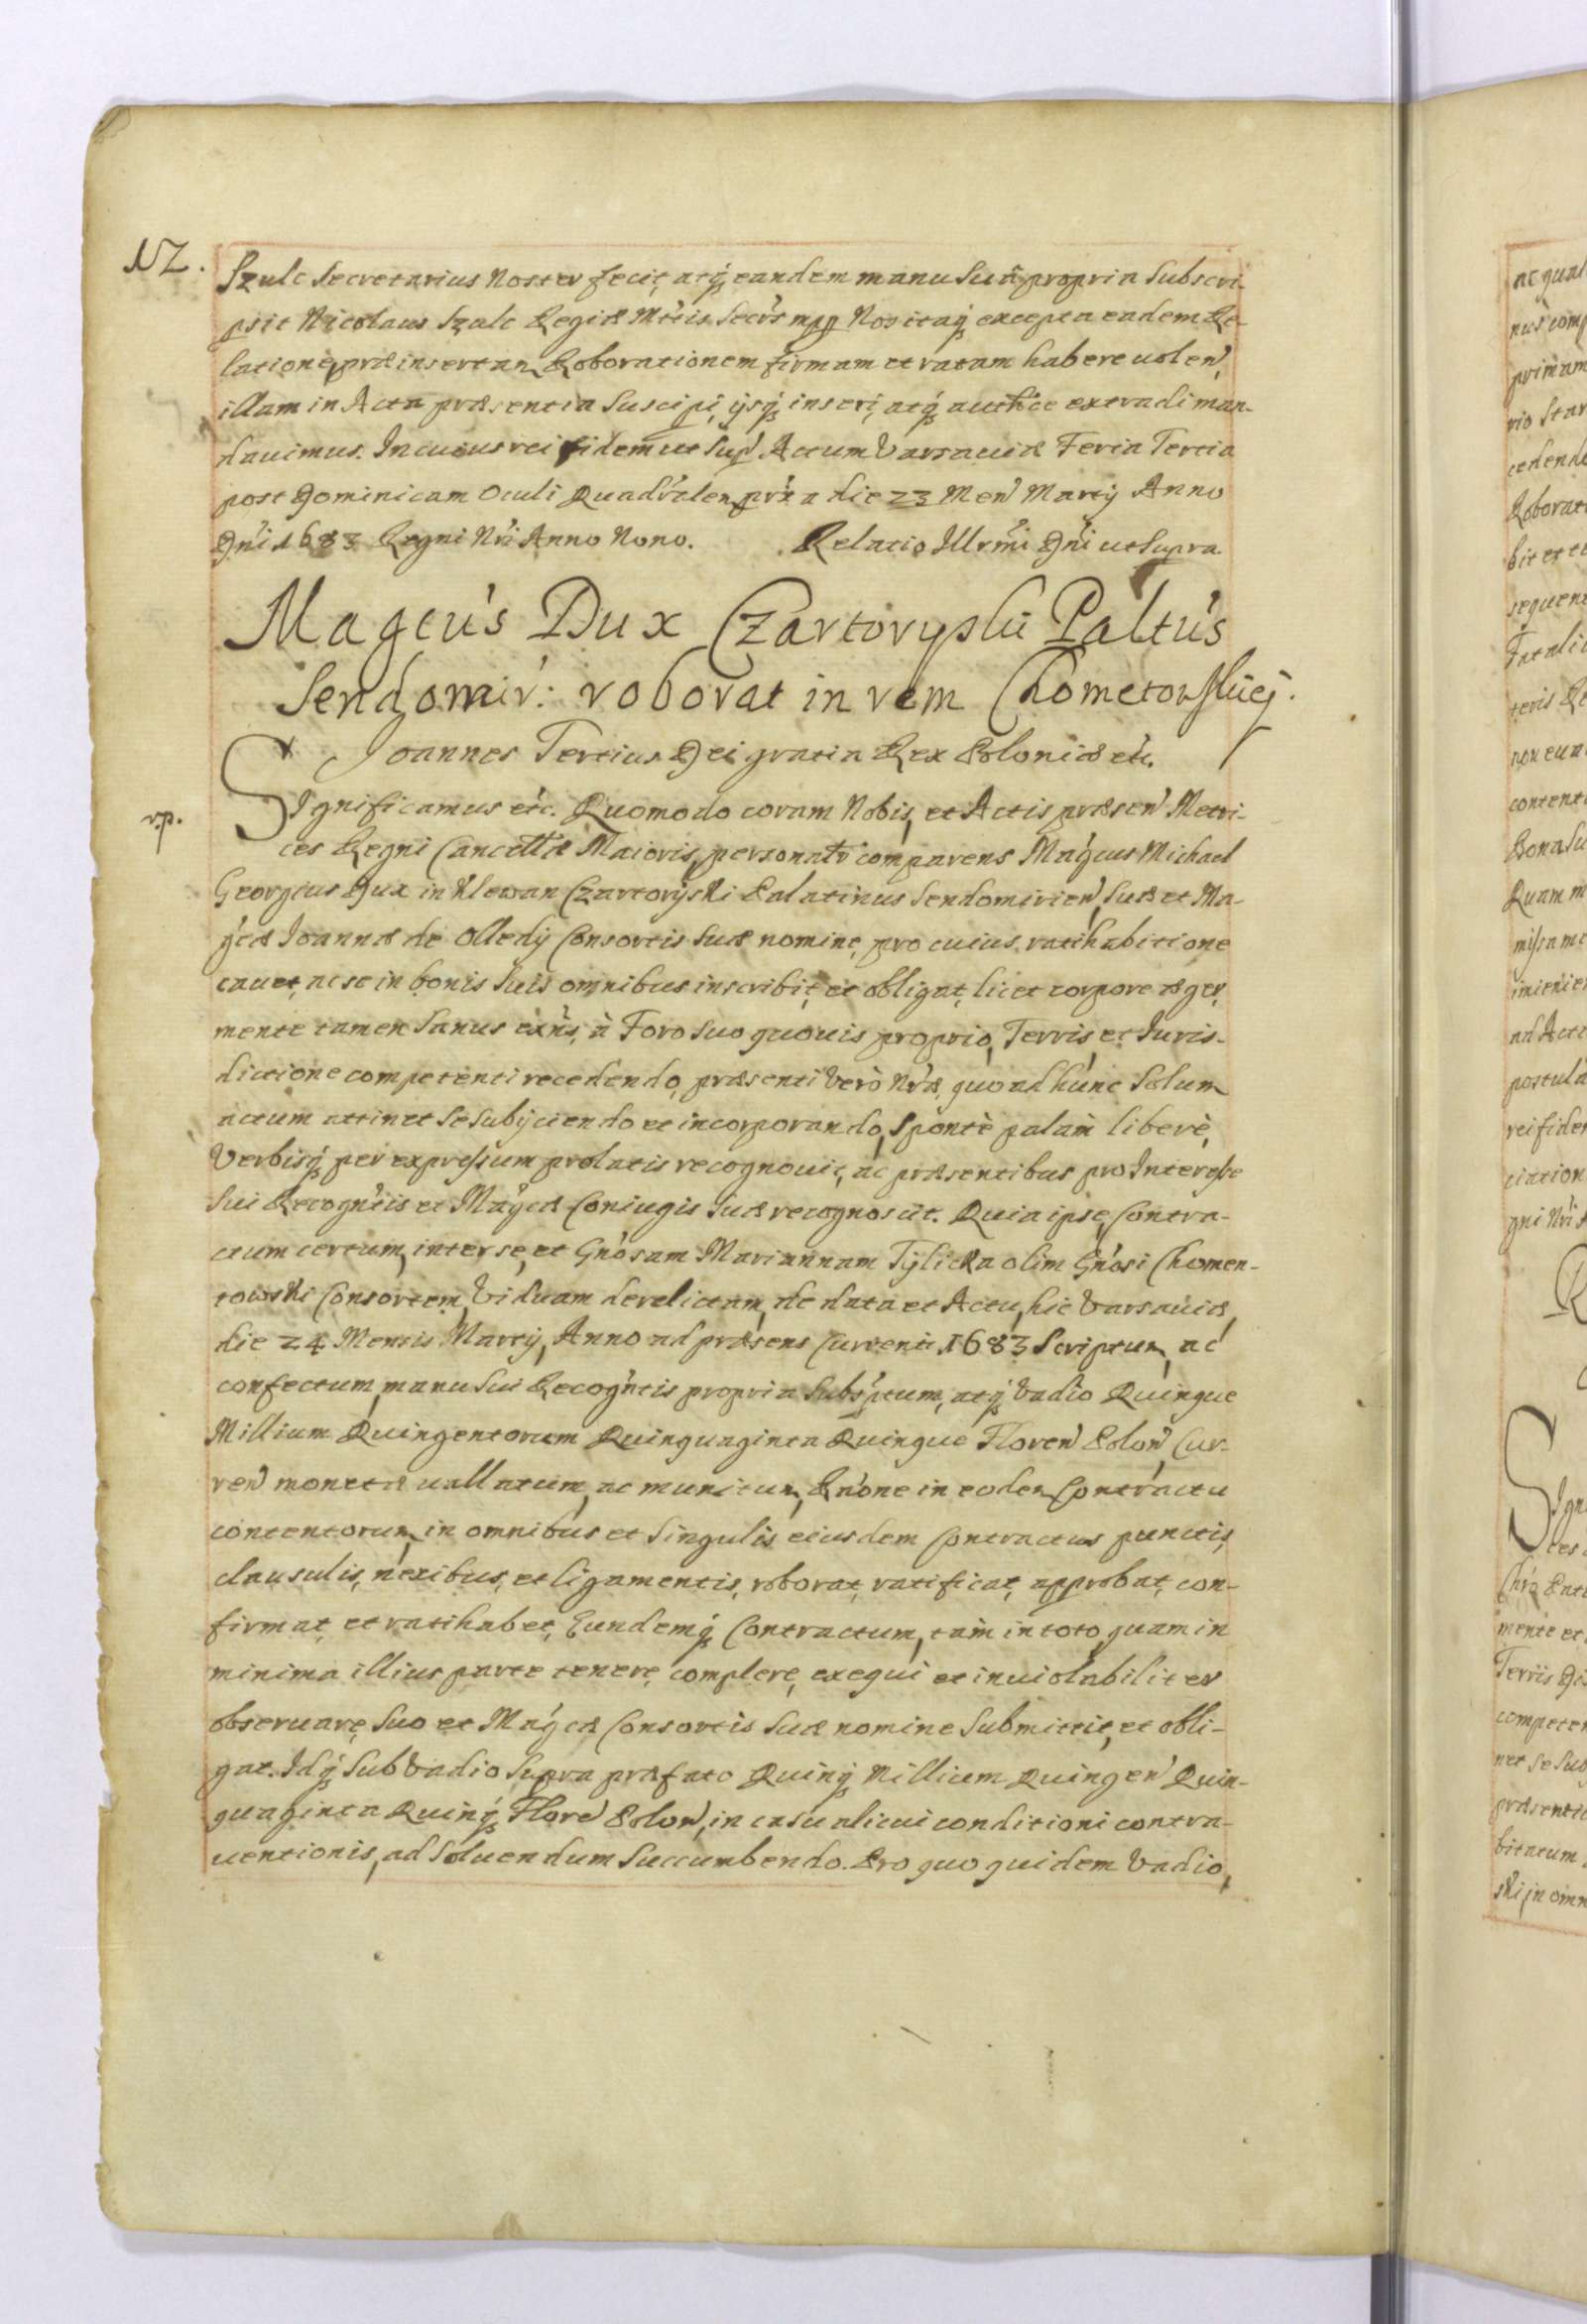 NZ.
Szulc Secretarius Noster fecit, atq́ eandem manu Sua propria Subscri-
psit Nicolaus Szulc Regiæ Mttis Secrs mpp Nos itaq́ excepta eadem Re-
latione, præinsertam Roborationem firmam et ratam habere uolen,
illam in Acta præsentia Suscipi, ijsq́ inseri, atq́ authce extradi man-
dauimus. In cuius rei fidem ut Sup. Actum Varsauiæ Feria Tertia
post Dominicam Oculi Quadralem prxa die 23 Men Martij Anno
Dni 1683 Regni Nri Anno Nono. Relatio Illrmi Dni ut Supra
Magcus Dux Czartoryskii Paltus
Sendomir: roborat in rem Chometowskiej.
Joannes Tertius Dei gratia Rex Poloniæ etc.
r.p.
Significamus etc. Quomodo coram Nobis, et Actis præsen Metri-
ces Regni Cancellæ Maioris, personatr comparens Magcus Michael
Georgius Dux in Klewan Czartoryski Palatinus Sendomirien, Suæ et Ma-
gcæ Joannæ de Olledy Consortis Suæ nomine, pro cuius ratihabitione
cauet, ac se in bonis Suis omnibus inscribit, et obligat, licet corpore æger,
mente tamen Sanus exns, à Foro Suo quouis proprio, Terris, et Juris-
dictione competenti recedendo, præsenti verò Nræ, quo ad hunc Solum
actum attinet Se Subijciendo et incorporando, Sponte palàm liberè,
Verbisq́ per expressum prolatis recognouit, ac præsentibus pro Interesse
Sui Recogntis et Magcæ Coniugis Suæ recognoscit. Quia ipse, Contra-
ctum certum, inter se, et Gnosam Mariannam Tylicka olim Gnosi Chomen-
towski Consortem, Viduam derelictam, de data et Actu, hic Varsauiæ,
die 24 Mensis Martij, Anno ad præsens Currenti 1683 Scriptum, ac
confectum, manu Sui Recogntis propria Subsptum, atq́ Vadio Quinque
Millium Quingentorum Quinquaginta Quinque Floren Polon, Cur-
ren monetæ uallatum, ac munitum, Rnone in eodem Contractu
contentorum, in omnibus et Singulis eiusdem Contractus punctis,
clausulis, nexibus, et ligamentis, roborat, ratificat, approbat, con-
firmat, et ratihabet, Eundemq́ Contractum, tàm in toto, quam in
minima illius parte tenere, complere, exequi et inuiolabiliter
obseruare, Suo et Magcæ Consortis Suæ nomine Submittit, et obli-
gat. Idq́ Sub Vadio Supra præfato Quinq́ Millium Quingen Quin-
quaginta Quinq́ Flore Polon, in casu alicui conditioni contra-
uentionis, ad Soluendum Succumbendo. Pro quo quidem Vadio,